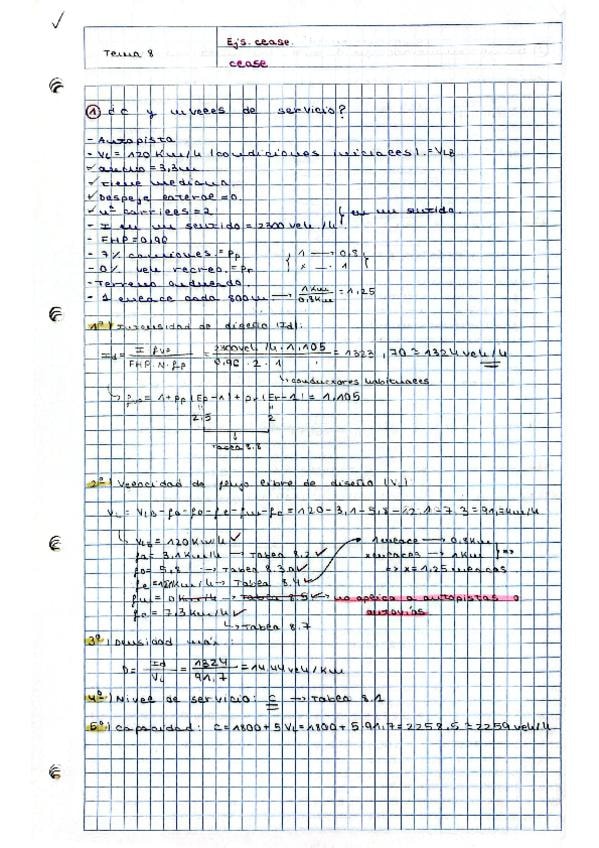 Tema 8
Ejs. clase.
clase
① ¿C y niveles de servicio?
- Autopista
- VL = 120 Km/h (condiciones iniciales). = VLB
- ancho = 3,3m
- tiene mediana.
- Despeje lateral = 0.
- nº carriles = 2 } en un sentido.
- I en un sentido = 2300 veh/h.
- FHP = 0,96
- 7% camiones = Pp
- 0% veh recreo = Pr
{ 1 → 0,8 x — 1 }
- Terreno ondulado.
- 1 enlace cada 800m → 1Km / 0,8Km = 1,25
1º) Intensidad de diseño (Id):
Id = I · fvp / FHP · N · fp = 2300veh/h · 1,105 / 0,96 · 2 · 1 = 1323,70 ≅ 1324 veh/h
↳ conductores habituales
↳ fvp = 1 + Pp (Ep - 1) + Pr (Er - 1) = 1,105
2,5 2
Tabla 8.8
2º) Velocidad de flujo libre de diseño (VL)
VL = VLB - fa - fd - fe - fm - fc = 120 - 3,1 - 5,8 - 12,1 - 7,3 = 91,7 Km/h
↳ VLB = 120 Km/h ✓
fa = 3,1 Km/h → Tabla 8.2 ✓
fd = 5,8 → Tabla 8.3a ✓
fe = 12,1 Km/h → Tabla 8.4 ✓
1 enlace → 0,8Km
x enlaces → 1Km } =>
=> x = 1,25 enlaces
fm = 0 Km/h → Tabla 8.5 ✓ → no aplica a autopistas o
autovías.
fc = 7,3 Km/h ✓
↳ Tabla 8.7
3º) Densidad máx
D = Id / VL = 1324 / 91,7 = 14,44 veh/Km
4º) Nivel de servicio: C → Tabla 8.1
5º) Capacidad: C = 1800 + 5 VL = 1800 + 5·91,7 = 2258,5 ≅ 2259 veh/h